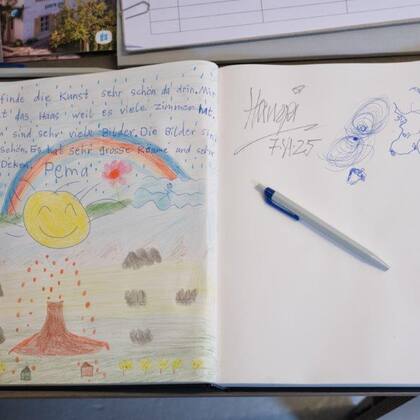 finde die Kunst sehr schön da dein. Mir
t das Haus weil es viele zimmer hat.
sind sehr viele Bilder. Die Bilder sin
schön. Es hat sehr grosse Räume und sehr
Deken.
Pema
7.11.25